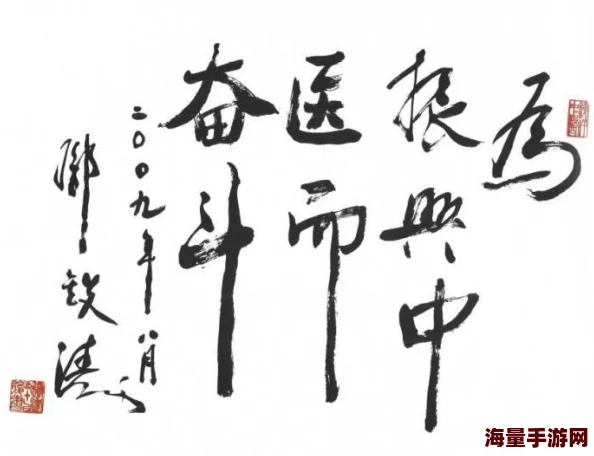 為
振興中
医而
奋斗
二〇〇九年八月
鄧铁涛
海量手游网